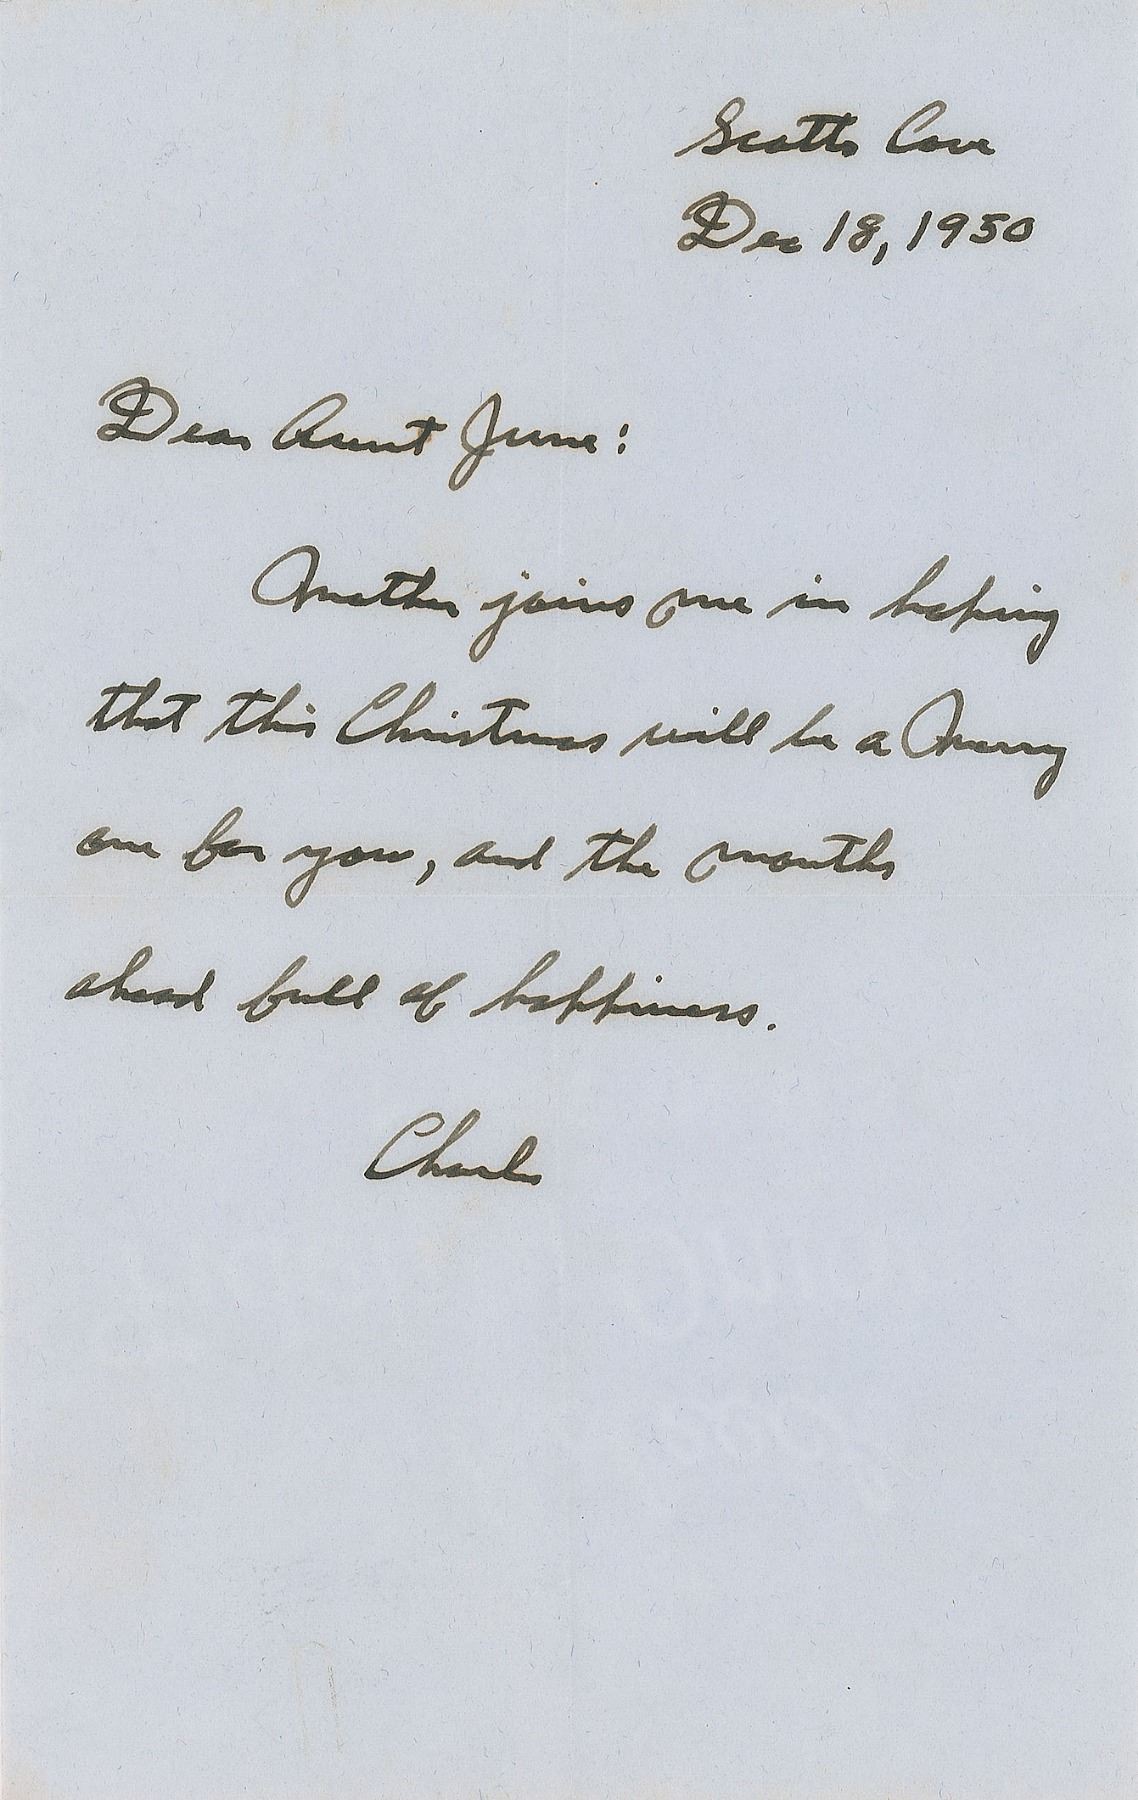 Scotts Cove
Dec 18, 1950
Dear Aunt June:
Mother joins me in hoping
that this Christmas will be a Merry
one for you, and the months
ahead full of happiness.
Charles